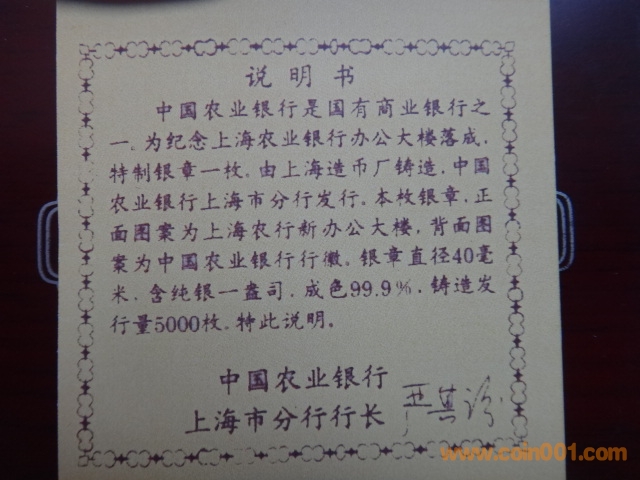 说明书
中国农业银行是国有商业银行之
一。为纪念上海农业银行办公大楼落成,
特制银章一枚。由上海造币厂铸造,中国
农业银行上海市分行发行。本枚银章,正
面图案为上海农行新办公大楼,背面图
案为中国农业银行行徽。银章直径40毫
米,含纯银一盎司,成色99.9%,铸造发
行量5000枚。特此说明。
中国农业银行
上海市分行行长
www.coin001.com